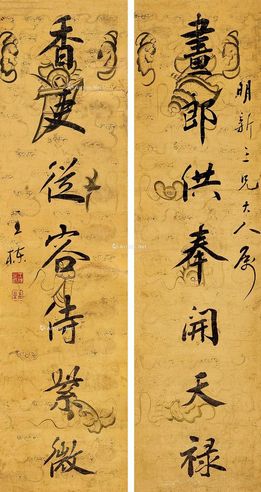 明新三兄大人属
畫郎供奉開天祿
香吏從容侍紫微
王棟